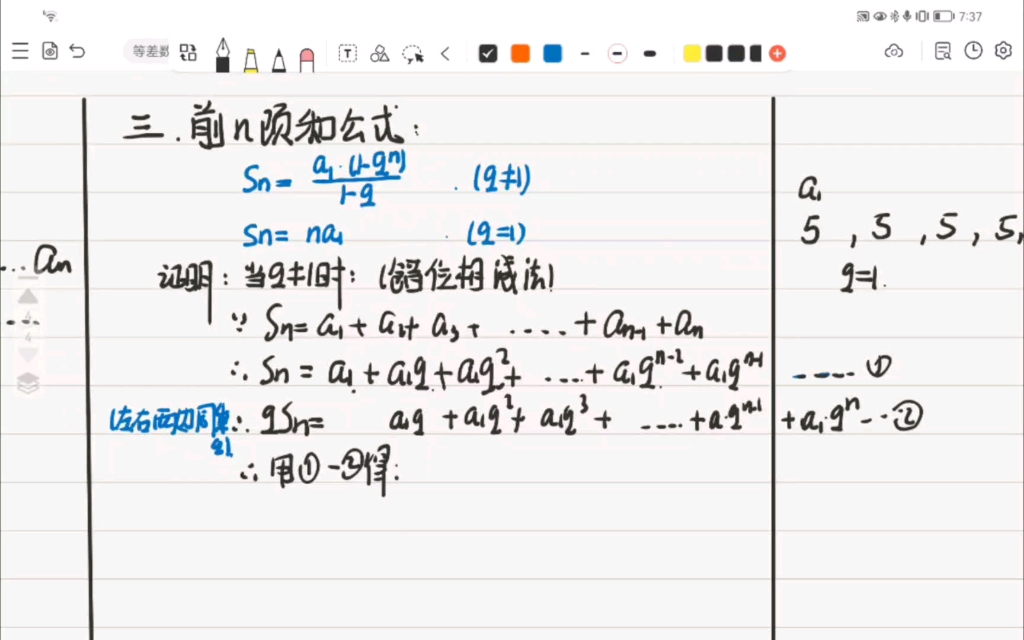 7:37
等差数
T
三.前n项和公式:
Sn = a₁·(1-qⁿ)/1-q . (q≠1)
Sn = na₁ . (q=1)
a₁
5 , 5 , 5 , 5,
q=1.
... an
证明:当q≠1时:(错位相减法)
∵ Sn = a₁ + a₂ + a₃ + .... + an-1 + an
∴ Sn = a₁ + a₁q + a₁q² + ... + a₁qⁿ⁻² + a₁qⁿ⁻¹ ..... ①
(左右两边同乘q) ∴ qSn = a₁q + a₁q² + a₁q³ + .... + a₁qⁿ⁻¹ + a₁·qⁿ ...②
∴ 用①-②得: